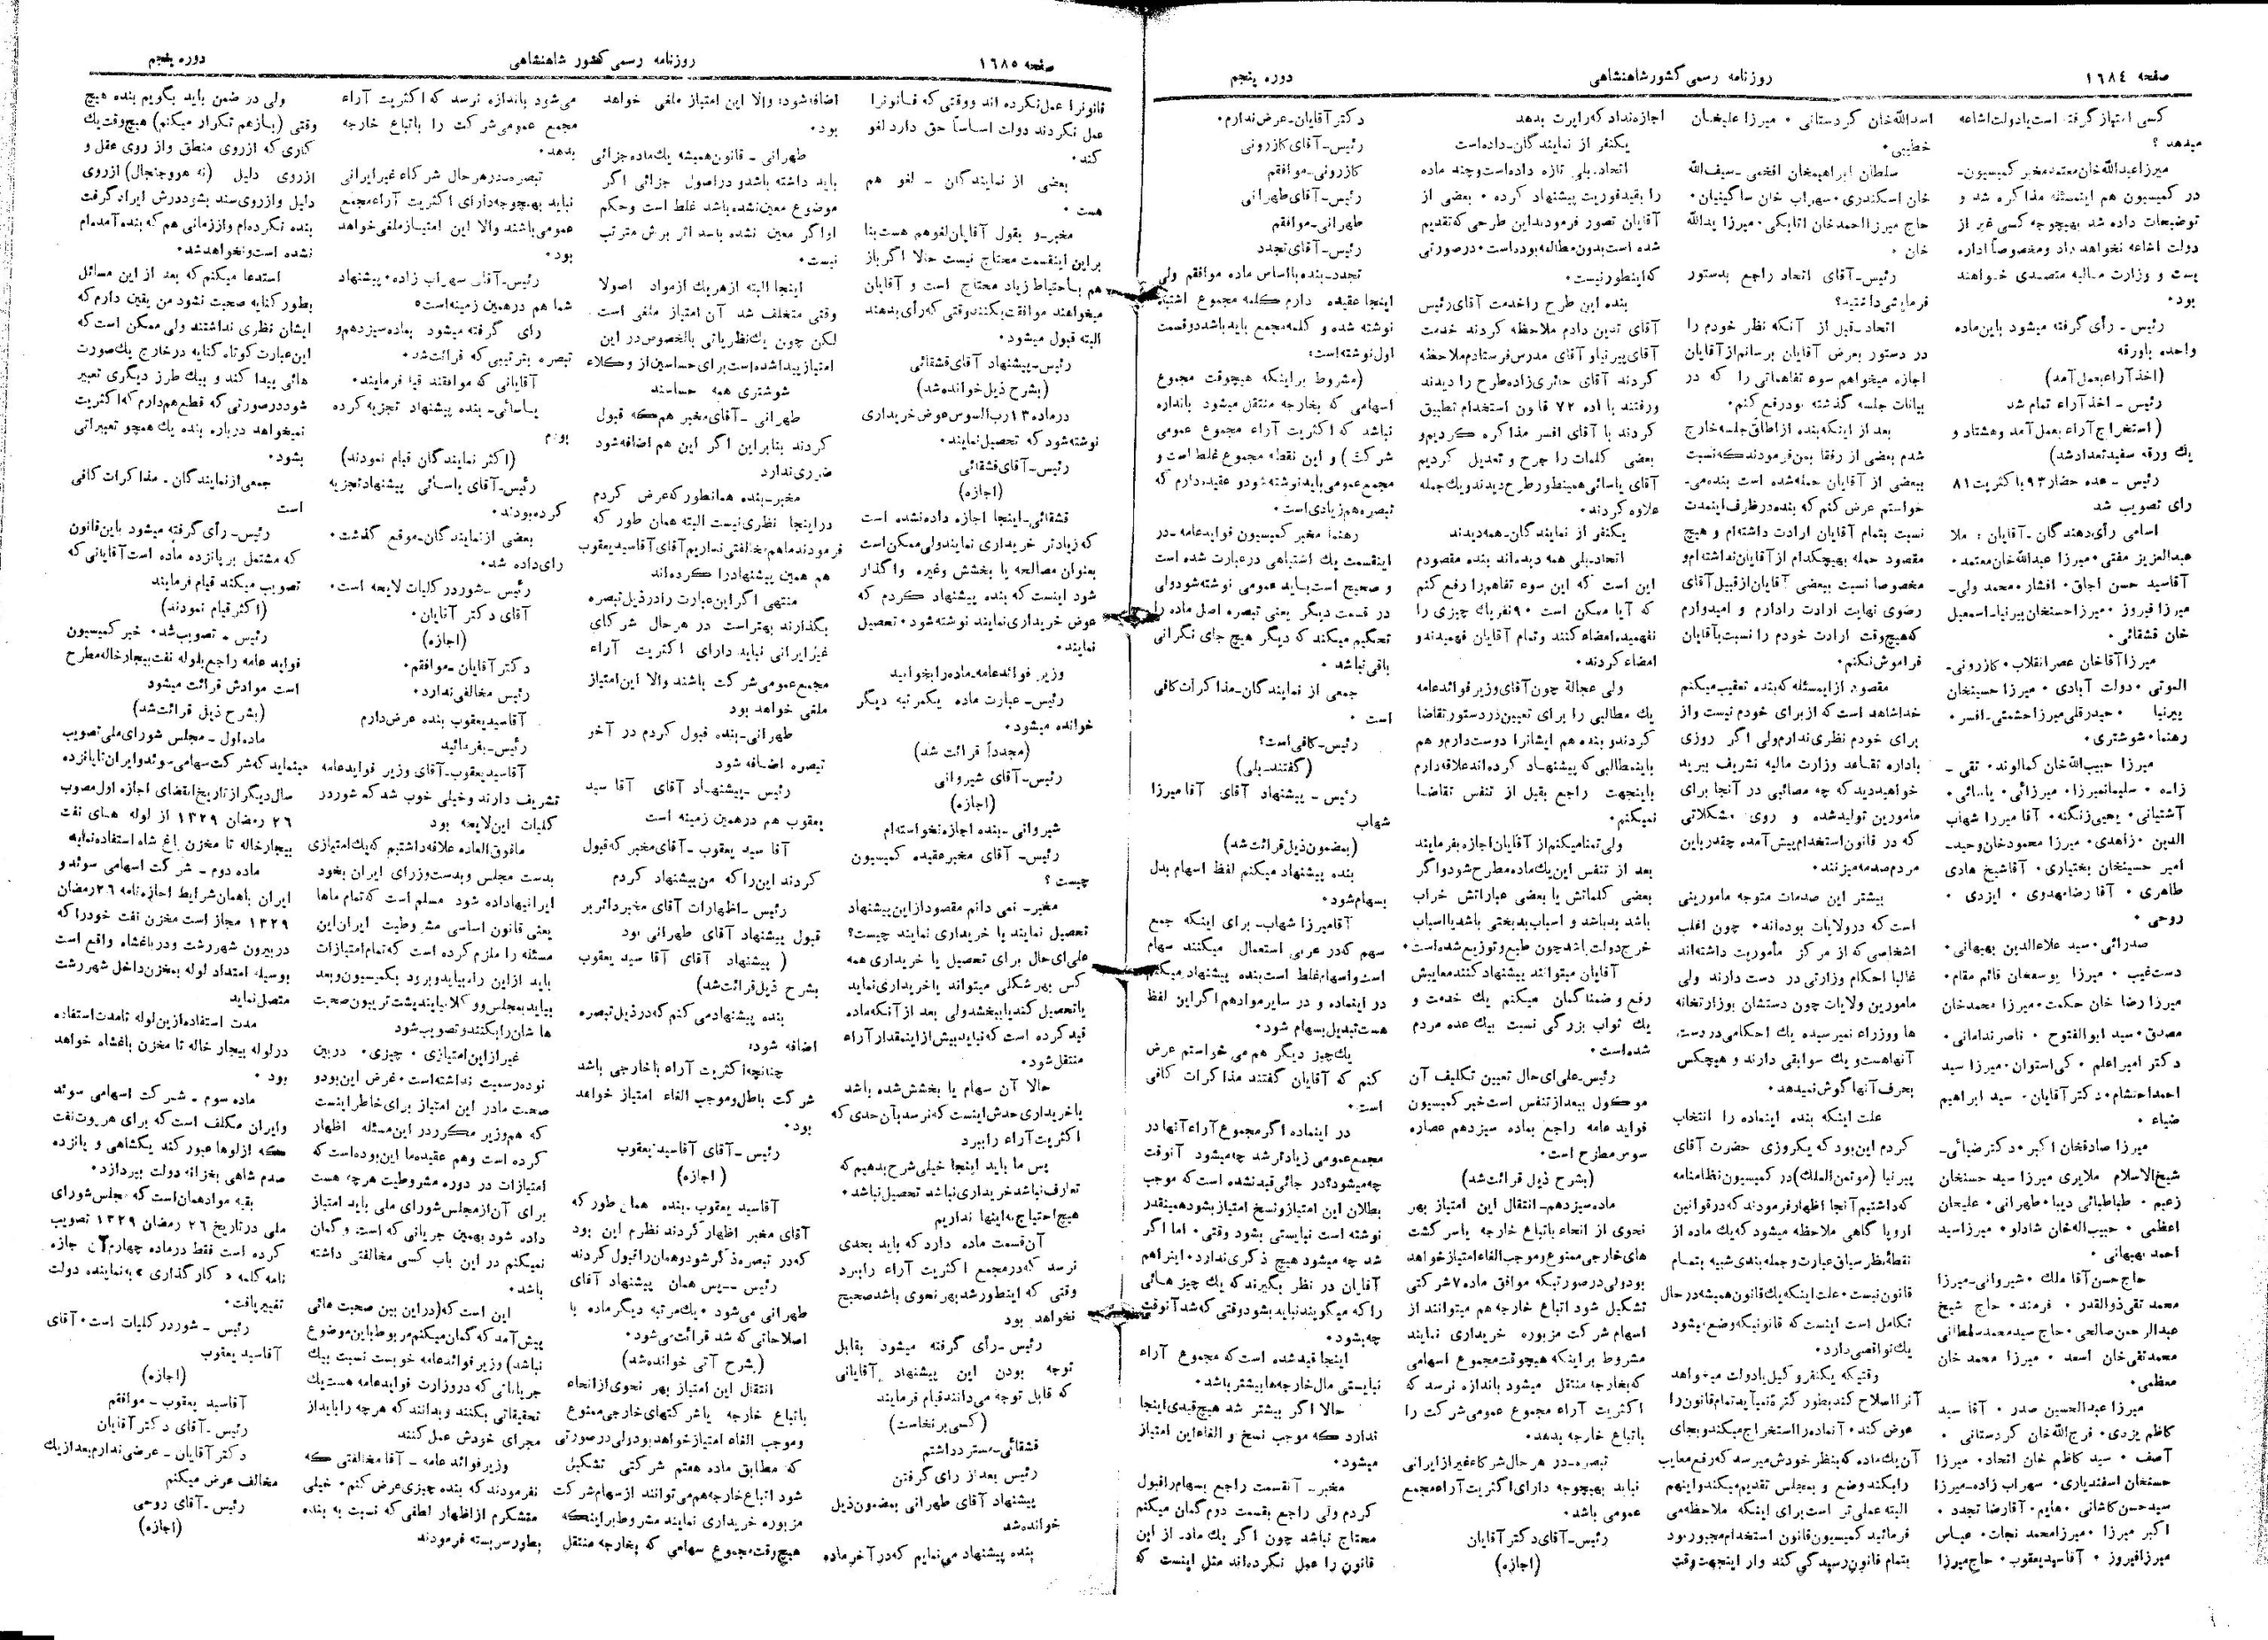 صفحه ١٦٨٤
روزنامه رسمی کشور شاهنشاهی
دوره پنجم
کسی امتیاز گرفته است یا دولت اشاعه
میدهد ؟
میرزا عبدالله خان معتمد مخبر کمیسیون-
در کمیسیون هم اینمسئله مذاکره شد و
توضیحات داده شد بهیچوجه کسی غیر از
دولت اشاعه نخواهد داد و مخصوصاً اداره
پست و وزارت مالیه متصدی خواهند
بود٠
رئیس - رأی گرفته میشود باین ماده
واحده باورقه
(اخذ آراء بعمل آمد)
رئیس - اخذ آراء تمام شد
(استخراج آراء بعمل آمد وهشتاد و
یك ورقه سفید تعداد شد)
رئیس - عده حضار ٩٣ با کثریت ٨١
رای تصویب شد
اسامی رأی دهندگان - آقایان : ملا
عبدالعزیز مفتی٠ میرزا عبدالله خان معتمد٠
آقاسید حسن اجاق٠ افشار٠ محمد ولی-
میرزا فیروز ٠ میرزا حسنخان پیرنیا- اسمعیل
خان قشقائی٠
میرزا آقاخان عصر انقلاب٠ کازرونی-
الموتی ٠ دولت آبادی ٠ میرزا حسینخان
پیرنیا ٠ حیدرقلی میرزا حشمتی- افسر٠
رهنما٠ شوشتری٠
میرزا حبیب الله خان کمالوند٠ تقی -
زاده ٠ سلیمان میرزا٠ میرزائی٠ یاسائی٠
آشتیانی٠ یحیی زنگنه٠ آقا میرزا شهاب
الدین ٠ زاهدی٠ میرزا محمود خان وحید-
امیر حسینخان بختیاری٠ آقاشیخ هادی
طاهری ٠ آقا رضا مهدوی ٠ ایزدی ٠
روحی ٠
صدرائی٠ سید علاءالدین بهبهانی٠
دست غیب ٠ میرزا یوسفخان قائم مقام٠
میرزا رضا خان حکمت٠ میرزا محمدخان
مصدق٠ سید ابوالفتوح ٠ ناصر ندامانی٠
دکتر امیر اعلم ٠ کی استوان٠ میرزا سید
احمد احتشام٠ دکتر آقایان٠ سید ابراهیم
ضیاء ٠
میرزا صادقخان اکبر٠ دکتر ضیائی-
شیخ الاسلام ملایری میرزا سید حسنخان
زعیم ٠ طباطبائی دیبا٠ طهرانی٠ علیخان
اعظمی ٠ حبیب اله خان شادلو٠ میرزا سید
احمد بهبهانی ٠
حاج حسن آقا ملك ٠ شیروانی- میرزا
محمد تقی ذوالقدر ٠ فرمند٠ حاج شیخ
عبدالرحمن صالحی٠ حاج سید محمد سلطانی
محمد تقی خان اسعد ٠ میرزا محمد خان
معظمی٠
میرزا عبدالحسین صدر ٠ آقا سید
کاظم یزدی٠ فرج الله خان کردستانی ٠
آصف ٠ سید کاظم خان اتحاد٠ میرزا
حسنخان اسفندیاری٠ سهراب زاده- میرزا
سید حسن کاشانی ٠ هایم٠ آقا رضا تجدد ٠
اکبر میرزا ٠ میرزا محمد نجات٠ عباس
میرزا فیروز ٠ آقا سید یعقوب٠ حاج میرزا
اسدالله خان کردستانی ٠ میرزا علیخان
خطیبی٠
سلطان ابراهیم خان افخمی - سیف الله
خان اسکندری٠ سهراب خان ساگینیان٠
حاج میرزا احمد خان اتابکی٠ میرزا یدالله
خان ٠
رئیس - آقای اتحاد راجع بدستور
فرمایشی داشتید؟
اتحاد - قبل از آنکه نظر خودم را
در دستور بعرض آقایان برسانم از آقایان
اجازه میخواهم سوء تفاهماتی را که در
بیانات جلسه گذشته بود رفع کنم٠
بعد از اینکه بنده از اطاق جلسه خارج
شدم بعضی از رفقا بمن فرمودند که نسبت
ببعضی از آقایان حمله شده است بنده می-
خواستم عرض کنم که بنده در ظرف اینمدت
نسبت بتمام آقایان ارادت داشته ام و هیچ
مقصود حمله بهیچکدام از آقایان نداشته ام و
مخصوصا نسبت ببعضی آقایان از قبیل آقای
رضوی نهایت ارادت را دارم و امیدوارم
که هیچ وقت ارادت خودم را نسبت بآقایان
فراموش نکنم٠
مقصود از این مسئله که بنده تعقیب میکنم
خدا شاهد است که از برای خودم نیست و از
برای خودم نظری ندارم ولی اگر روزی
باداره تقاعد وزارت مالیه تشریف ببرید
خواهید دید که چه مصائبی در آنجا برای
مأمورین تولید شده و روی مشکلاتی
که در قانون استخدام پیش آمده چقدر باین
مردم صدمه میزنند٠
بیشتر این صدمات متوجه مأمورینی
است که در ولایات بوده اند٠ چون اغلب
اشخاصی که از مرکز مأموریت داشته اند
غالبا احکام وزارتی در دست دارند ولی
مامورین ولایات چون دستشان بوزارتخانه
ها ووزراء نمیرسیده یك احکامی در دست
آنها هست و یك سوابقی دارند و هیچکس
بحرف آنها گوش نمیدهد٠
علت اینکه بنده اینماده را انتخاب
کردم این بود که یکروزی حضرت آقای
پیرنیا (موتمن الملك) در کمیسیون نظامنامه
که داشتیم آنجا اظهار فرمودند که در قوانین
اروپا گاهی ملاحظه میشود که یك ماده از
نقطه نظر سیاق عبارت و جمله بندی شبیه بتمام
قانون نیست٠ علت اینکه یك قانون همیشه در حال
تکامل است اینست که قانونیکه وضع میشود
یك نواقصی دارد٠
وقتیکه یکنفر وکیل یا دولت میخواهد
آنرا اصلاح کند بطور کثرة نمیآید تمام قانون را
عوض کند٠ آنماده را استخراج میکند و بجای
آن یك ماده که بنظر خودش میرسد که رفع معایب
را بکند وضع و بمجلس تقدیم میکند و اینهم
البته عملی تر است برای اینکه ملاحظه می
فرمائید کمیسیون قانون استخدام مجبور بود
بتمام قانون رسیدگی کند و از اینجهت وقت
اجازه نداد که راپرت بدهد
یکنفر از نمایندگان - داده است
اتحاد - بلی تازه داده است و چند ماده
را بقید فوریت پیشنهاد کرده ٠ بعضی از
آقایان تصور فرمودند این طرحی که تقدیم
شده است بدون مطالعه بوده است٠ در صورتی
که اینطور نیست٠
بنده این طرح را خدمت آقای رئیس
آقای تدین دادم ملاحظه کردند خدمت
آقای پیرنیا و آقای مدرس فرستادم ملاحظه
کردند آقای حائری زاده طرح را دیدند
ورفتند با ماده ٧٢ قانون استخدام تطبیق
کردند با آقای افسر مذاکره کردیم و
بعضی کلمات را جرح و تعدیل کردیم
آقای یاسائی همینطور طرح دیدند و یك جمله
علاوه کردند٠
یکنفر از نمایندگان - همه دیدند
اتحاد - بلی همه دیده اند بنده مقصودم
این است که این سوء تفاهم را رفع کنم
که آیا ممکن است ٩٠ نفر یك چیزی را
نفهمیده امضاء کنند و تمام آقایان فهمیدند و
امضاء کردند٠
ولی عجالة چون آقای وزیر فوائد عامه
یك مطالبی را برای تعیین در دستور تقاضا
کردند و بنده هم ایشانرا دوست دارم و هم
باینمطالبی که پیشنهاد کرده اند علاقه دارم
باینجهت راجع بقبل از تنفس تقاضا
نمیکنم٠
ولی تمنا میکنم از آقایان اجازه بفرمایند
بعد از تنفس این یك ماده مطرح شود و اگر
بعضی کلماتش یا بعضی عباراتش خراب
باشد بد باشد و اسباب بدبختی باشد یا اسباب
خرج دولت باشد چون طبع و توزیع شده است٠
آقایان میتوانند پیشنهاد کنند معایبش
رفع و ضمنا گمان میکنم یك خدمت و
یك ثواب بزرگی نسبت بیك عده مردم
شده است٠
رئیس - علی ای حال تعیین تکلیف آن
موکول ببعد از تنفس است خبر کمیسیون
فوائد عامه راجع بماده سیزدهم عصاره
سوس مطرح است٠
(بشرح ذیل قرائت شد)
ماده سیزدهم - انتقال این امتیاز بهر
نحوی از انحاء باتباع خارجه یا سر کشت
های خارجی ممنوع و موجب الغاء امتیاز خواهد
بود ولی در صورتیکه موافق ماده ٧ شرکتی
تشکیل شود اتباع خارجه هم میتوانند از
اسهام شرکت مزبوره خریداری نمایند
مشروط بر اینکه هیچوقت مجموع اسهامی
که بخارجه منتقل میشود باندازه نرسد که
اکثریت آراء مجموع عمومی شرکت را
باتباع خارجه بدهد٠
تبصره - در هر حال شرکاء غیر از ایرانی
نباید بهیچوجه دارای اکثریت آراء مجمع
عمومی باشد٠
رئیس - آقای دکتر آقایان
(اجازه)
دکتر آقایان - عرض ندارم٠
رئیس - آقای کازرونی
کازرونی - موافقم
رئیس - آقای طهرانی
طهرانی - موافقم
رئیس - آقای تجدد
تجدد - بنده با اساس ماده موافقم ولی
اینجا عقیده دارم کلمه مجموع اشتباه
نوشته شده و کلمه مجمع باید باشد در قسمت
اول نوشته است:
(مشروط بر اینکه هیچوقت مجموع
اسهامی که بخارجه منتقل میشود باندازه
نباشد که اکثریت آراء مجموع عمومی
شرکت) و این نقطه مجموع غلط است و
مجمع عمومی باید نوشته شود و عقیده دارم که
تبصره هم زیادی است٠
رهنما مخبر کمیسیون فوایدعامه - در
اینقسمت یك اشتباهی در عبارت شده است
و صحیح است باید عمومی نوشته شود ولی
در قسمت دیگر یعنی تبصره اصل ماده را
تحکیم میکند که دیگر هیچ جای نگرانی
باقی نباشد ٠
جمعی از نمایندگان - مذاکرات کافی
است ٠
رئیس - کافی است؟
(گفتند - بلی)
رئیس - پیشنهاد آقای آقا میرزا
شهاب
(بمضمون ذیل قرائت شد)
بنده پیشنهاد میکنم لفظ اسهام بدل
بسهام شود٠
آقا میرزا شهاب - برای اینکه جمع
سهم که در عربی استعمال میکنند سهام
است و اسهام غلط است بنده پیشنهاد میکنم
در اینماده و در سایر مواد هم اگر این لفظ
هست تبدیل بسهام شود٠
یك چیز دیگر هم می خواستم عرض
کنم که آقایان گفتند مذاکرات کافی
است٠
در اینماده اگر مجموع آراء آنها در
مجمع عمومی زیادتر شد چه میشود آنوقت
چه میشود؟ در جائی قید نشده است که موجب
بطلان این امتیاز و نسخ امتیاز بشود همینقدر
نوشته است نبایستی بشود وقتی ٠ اما اگر
شد چه میشود هیچ ذکری ندارد٠ اینرا هم
آقایان در نظر بگیرند که یك چیز هائی
را که میگویند نباید بشود وقتی که شد آنوقت
چه بشود٠
اینجا قید شده است که مجموع آراء
نبایستی مال خارجه ها بیشتر باشد٠
حالا اگر بیشتر شد هیچ قیدی اینجا
ندارد که موجب نسخ و الغاء این امتیاز
میشود٠
مخبر - آنقسمت راجع بسهام را قبول
کردم ولی راجع بقسمت دوم گمان میکنم
محتاج نباشد چون اگر یك ماده از این
قانون را عمل نکرده اند مثل اینست که
صفحه ١٦٨٥
روزنامه رسمی کشور شاهنشاهی
دوره پنجم
قانونرا عمل نکرده اند ووقتی که قانونرا
عمل نکردند دولت اساساً حق دارد لغو
کند٠
بعضی از نمایندگان - لغو هم
هست ٠
مخبر - و بقول آقایان لغو هم هست بنا
براین اینقسمت محتاج نیست حالا اگر باز
هم باحتیاط زیاد محتاج است و آقایان
میخواهند موافقت بکنند وقتی که رأی بدهند
البته قبول میشود٠
رئیس - پیشنهاد آقای قشقائی
(بشرح ذیل خوانده شد)
درماده ١٣ رب السوس عوض خریداری
نوشته شود که تحصیل نمایند٠
رئیس - آقای قشقائی
(اجازه)
قشقائی - اینجا اجازه داده نشده است
که زیادتر خریداری نمایند ولی ممکن است
بعنوان مصالحه یا بخشش وغیره واگذار
شود اینست که بنده پیشنهاد کردم که
عوض خریداری نمایند نوشته شود٠ تحصیل
نمایند٠
وزیر فوائد عامه - ماده را بخوانید
رئیس - عبارت ماده یکمرتبه دیگر
خوانده میشود٠
(مجدداً قرائت شد)
رئیس - آقای شیروانی
(اجازه)
شیروانی - بنده اجازه نخواسته ام
رئیس - آقای مخبر عقیده کمیسیون
چیست ؟
مخبر - نمی دانم مقصود از این پیشنهاد
تحصیل نمایند یا خریداری نمایند چیست؟
علی ای حال برای تحصیل یا خریداری همه
کس بهر شکلی میتواند یا خریداری نماید
یا تحصیل کند یا ببخشد ولی بعد از آنکه ماده
قید کرده است که نباید بیش از اینمقدار آراء
منتقل شود٠
حالا آن سهام یا بخشش شده باشد
یا خریداری حدش اینست که نرسد بآن حدی که
اکثریت آراء را ببرد
پس ما باید اینجا خیلی شرح بدهیم که
تعارف نباشد خریداری نباشد تحصیل نباشد٠
هیچ احتیاج باینها نداریم
آن قسمت ماده دارد که باید بحدی
نرسد که در مجمع اکثریت آراء را ببرد
وقتی که اینطور شد بهر نحوی باشد صحیح
نخواهد بود
رئیس - رأی گرفته میشود بقابل
توجه بودن این پیشنهاد آقایانی
که قابل توجه می دانند قیام فرمایند
(کسی بر نخاست)
قشقائی - مسترد داشتم
رئیس بعد از رای گرفتن
پیشنهاد آقای طهرانی بمضمون ذیل
خوانده شد
بنده پیشنهاد می نمایم که در آخر ماده
اضافه شود: والا این امتیاز ملغی خواهد
بود٠
طهرانی - قانون همیشه یك ماده جزائی
باید داشته باشد و در اصول جزائی اگر
موضوع معین نشده باشد غلط است وحکم
او اگر معین نشده باشد اثر برش مترتب
نیست٠
اینجا البته از هر یك از مواد اصولا
وقتی متخلف شد آن امتیاز ملغی است
لکن چون یك نظریاتی بالخصوص در این
امتیاز پیدا شده است برای حساسین از وکلاء
شوشتری همه حساسند
طهرانی - آقای مخبر هم که قبول
کردند بنابر این اگر این هم اضافه شود
ضرری ندارد
مخبر - بنده همانطور که عرض کردم
در اینجا نظری نیست البته همان طور که
فرمودند ما هم مخالفتی نداریم آقای آقاسید یعقوب
هم همین پیشنهاد را کرده اند
منتهی اگر این عبارت را در ذیل تبصره
بگذارند بهتر است در هر حال شرکای
غیر ایرانی نباید دارای اکثریت آراء
مجمع عمومی شرکت باشند والا این امتیاز
ملغی خواهد بود
طهرانی - بنده قبول کردم در آخر
تبصره اضافه شود
رئیس - پیشنهاد آقای آقا سید
یعقوب هم در همین زمینه است
آقا سید یعقوب - آقای مخبر که قبول
کردند این را که من پیشنهاد کردم
رئیس - اظهارات آقای مخبر دائر بر
قبول پیشنهاد آقای طهرانی بود
(پیشنهاد آقای آقا سید یعقوب
بشرح ذیل قرائت شد)
بنده پیشنهاد می کنم که در ذیل تبصره
اضافه شود:
چنانچه اکثریت آراء با خارجی باشد
شرکت باطل و موجب الغاء امتیاز خواهد
بود٠
رئیس - آقای آقاسید یعقوب
(اجازه)
آقاسید یعقوب - بنده همان طور که
آقای مخبر اظهار کردند نظرم این بود
که در تبصره ذکر شود و همان را قبول کردند
رئیس - پس همان پیشنهاد آقای
طهرانی می شود ٠ یك مرتبه دیگر ماده با
اصلاحاتی که شد قرائت می شود٠
(بشرح آتی خوانده شد)
انتقال این امتیاز بهر نحوی از انحاء
باتباع خارجه یا شرکتهای خارجی ممنوع
وموجب الغاء امتیاز خواهد بود ولی در صورتی
که مطابق ماده هفتم شرکتی تشکیل
شود اتباع خارجه هم می توانند از سهام شرکت
مزبوره خریداری نمایند مشروط بر اینکه
هیچ وقت مجموع سهامی که بخارجه منتقل
می شود باندازه نرسد که اکثریت آراء
مجمع عمومی شرکت را باتباع خارجه
بدهد٠
تبصره - در هر حال شرکاء غیر ایرانی
نباید بهیچوجه دارای اکثریت آراء مجمع
عمومی باشند والا این امتیاز ملغی خواهد
بود ٠
رئیس - آقای سهراب زاده٠ پیشنهاد
شما هم در همین زمینه است؟
رای گرفته میشود بماده سیزدهم و
تبصره بترتیبی که قرائت شد٠
آقایانی که موافقند قیام فرمایند٠
یاسائی - بنده پیشنهاد تجزیه کرده
بودم
(اکثر نمایندگان قیام نمودند)
رئیس - آقای یاسائی پیشنهاد تجزیه
کرده بودند٠
بعضی از نمایندگان - موقع گذشت٠
رای داده شد٠
رئیس - شور در کلیات لایحه است٠
آقای دکتر آقایان٠
(اجازه)
دکتر آقایان - موافقم٠
رئیس مخالفی ندارد٠
آقاسید یعقوب بنده عرض دارم
رئیس - بفرمائید
آقاسید یعقوب - آقای وزیر فواید عامه
تشریف دارند و خیلی خوب شد که شور در
کلیات این لایحه بود
مافوق العاده علاقه داشتیم که یك امتیازی
بدست مجلس و بدست وزرای ایران بخود
ایرانیها داده شود مسلم است که تمام ماها
یعنی قانون اساسی مشروطیت ایران این
مسئله را ملزم کرده است که تمام امتیازات
باید از این راه بیاید و برود بکمیسیون و بعد
بیاید بمجلس و وکلا بیایند پشت تریبون صحبت
ها شان را بکنند و تصویب شود
غیر از این امتیازی ٠ چیزی٠ در بین
نوده رسمیت نداشته است٠ غرض این بود و
صحبت مادر این امتیاز برای خاطر اینست
که هم وزیر مکرر در این مسئله اظهار
کرده است وهم عقیده ما این بوده است که
امتیازات در دوره مشروطیت هر چه هست
برای آن از مجلس شورای ملی باید امتیاز
داده شود بهمین جریانی که است و گمان
نمیکنم در این باب کسی مخالفتی داشته
باشد٠
این است که (در این بین صحبت هائی
پیش آمد که گمان میکنم مربوط باین موضوع
نباشد) وزیر فوائد عامه خوبست نسبت بیك
جریاناتی که در وزارت فواید عامه هست یك
تحقیقاتی بکنند و بدانند که هر چه را باید از
مجرای خودش عمل کنند
وزیر فوائد عامه - آقا مخالفتی که
نفرمودند که بنده چیزی عرض کنم٠ خیلی
متشکرم از اظهار لطفی که نسبت به بنده
بطور سربسته فرمودند
ولی در ضمن باید بگویم بنده هیچ
وقتی (بازهم تکرار میکنم) هیچ وقت یك
کاری که از روی منطق و از روی عقل و
از روی دلیل (نه هو و جنجال) از روی
دلیل و از روی سند بشود درش ایراد گرفت
بنده نکرده ام و از زمانی هم که بنده آمده ام
نشده است و نخواهد شد٠
استدعا میکنم که بعد از این مسائل
بطور کنایه صحبت نشود من یقین دارم که
ایشان نظری نداشتند ولی ممکن است که
این عبارت کوتاه کنایه در خارج یك صورت
هائی پیدا کند و بیك طرز دیگری تعبیر
شود در صورتی که قطع هم دارم که اکثریت
نمیخواهد درباره بنده یك همچو تعبیراتی
بشود٠
جمعی از نمایندگان ـ مذاکرات کافی
است
رئیس - رأی گرفته میشود باین قانون
که مشتمل بر پانزده ماده است آقایانی که
تصویب میکنند قیام فرمایند
(اکثر قیام نمودند)
رئیس - تصویب شد٠ خبر کمیسیون
فواید عامه راجع بلوله نفت بیجارخاله مطرح
است موادش قرائت میشود
(بشرح ذیل قرائت شد)
ماده اول - مجلس شورای ملی تصویب
مینماید که شرکت سهامی سوئد و ایران تا پانزده
سال دیگر از تاریخ انقضای اجازه اول مصوب
٢٦ رمضان ١٣٢٩ از لوله های نفت
بیجارخاله تا مخزن باغ شاه استفاده نماید
ماده دوم - شرکت اسهامی سوئد و
ایران باهمان شرایط اجازه نامه ٢٦ رمضان
١٣٢٩ مجاز است مخزن نفت خود را که
در بیرون شهر رشت و در باغشاه واقع است
بوسیله امتداد لوله بمخزن داخل شهر رشت
متصل نماید
مدت استفاده از این لوله تا مدت استفاده
در لوله بیجار خاله تا مخزن باغشاه خواهد
بود ٠
ماده سوم - شرکت اسهامی سوئد
و ایران مکلف است که برای هر پوت نفت
که از لوله ها عبور کند یکشاهی و پانزده
صدم شاهی بخزانه دولت بپردازد٠
بقیه مواد همان است که مجلس شورای
ملی در تاریخ ٢٦ رمضان ١٣٢٩ تصویب
کرده است فقط در ماده چهارم آن اجازه
نامه کلمه « کارگذاری » به نماینده دولت
تغییر یافت٠
رئیس - شور در کلیات است٠ آقای
آقاسید یعقوب
(اجازه)
آقاسید یعقوب - موافقم
رئیس - آقای دکتر آقایان
دکتر آقایان - عرضی ندارم بعد از یك
مخالف عرض میکنم
رئیس - آقای روحی
(اجازه)